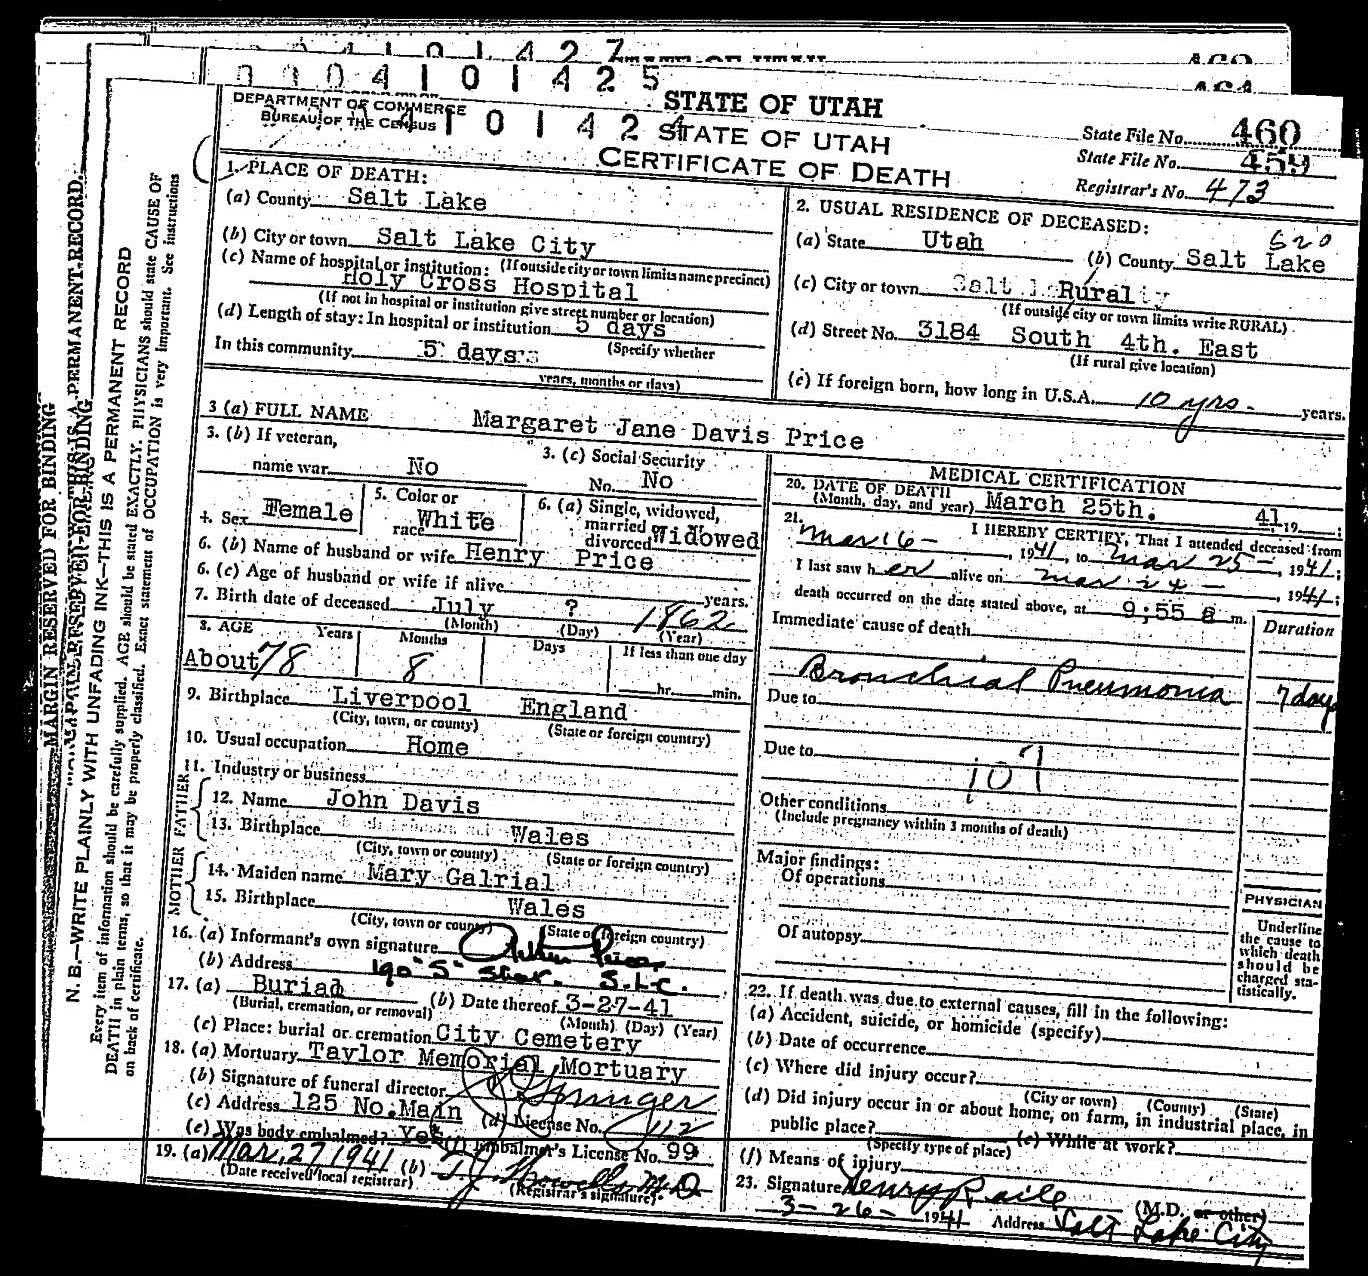 0 0 0 4 1 0 1 4 2 7
STATE OF UTAH
0 0 0 4 1 0 1 4 2 5
STATE OF UTAH
DEPARTMENT OF COMMERCE
BUREAU OF THE CENSUS
4 1 0 1 4 2 4
STATE OF UTAH
CERTIFICATE OF DEATH
State File No. 460
State File No. 459
Registrar's No. 473
1. PLACE OF DEATH:
(a) County Salt Lake
(b) City or town Salt Lake City
(If outside city or town limits name precinct)
(c) Name of hospital or institution:
Holy Cross Hospital
(If not in hospital or institution give street number or location)
(d) Length of stay: In hospital or institution 5 days
(Specify whether
In this community 5 days
years, months or days)
2. USUAL RESIDENCE OF DECEASED:
620
(a) State Utah (b) County Salt Lake
(c) City or town Rural
(If outside city or town limits write RURAL)
(d) Street No. 3184 South 4th. East
(If rural give location)
(e) If foreign born, how long in U.S.A. 10 yrs. years.
3 (a) FULL NAME Margaret Jane Davis Price
3. (b) If veteran,
name war No
3. (c) Social Security
No. No
4. Sex Female
5. Color or
race White
6. (a) Single, widowed,
married or
divorced Widowed
6. (b) Name of husband or wife Henry Price
6. (c) Age of husband or wife if alive years.
7. Birth date of deceased July ? 1862
(Month) (Day) (Year)
8. AGE Years Months Days If less than one day
About 78 8 hr. min.
9. Birthplace Liverpool England
(City, town, or county) (State or foreign country)
10. Usual occupation Home
11. Industry or business
FATHER
12. Name John Davis
13. Birthplace Wales
(City, town or county) (State or foreign country)
MOTHER
14. Maiden name Mary Galrial
15. Birthplace Wales
(City, town or county) (State or foreign country)
16. (a) Informant's own signature Price
(b) Address 190 "S" S.L.C.
17. (a) Burial (b) Date thereof 3-27-41
(Burial, cremation, or removal) (Month) (Day) (Year)
(c) Place: burial or cremation City Cemetery
18. (a) Mortuary Taylor Memorial Mortuary
(b) Signature of funeral director Springer
(c) Address 125 No. Main (d) License No. 112
(e) Was body embalmed? Yes (f) Embalmer's License No. 99
19. (a) Mar. 27 1941 (b) T. J. Howells M.D.
(Date received local registrar) (Registrar's signature)
MEDICAL CERTIFICATION
20. DATE OF DEATH
(Month, day, and year) March 25th. 41 19
21. I HEREBY CERTIFY, That I attended deceased from
Mar 16 - , 1941, to Mar 25 - , 1941;
I last saw her alive on Mar 24 - , 1941;
death occurred on the date stated above, at 9;55 a m.
Immediate cause of death Duration
Bronchial Pneumonia 7 days
Due to
Due to 107
Other conditions
(Include pregnancy within 3 months of death)
Major findings:
Of operations
Of autopsy
PHYSICIAN
Underline
the cause to
which death
should be
charged sta-
tistically.
22. If death was due to external causes, fill in the following:
(a) Accident, suicide, or homicide (specify)
(b) Date of occurrence
(c) Where did injury occur?
(City or town) (County) (State)
(d) Did injury occur in or about home, on farm, in industrial place, in
public place? (e) While at work?
(Specify type of place)
(f) Means of injury
23. Signature Henry Raile (M.D. or other)
3-26- 1941 Address Salt Lake City
MARGIN RESERVED FOR BINDING
N. B.—WRITE PLAINLY WITH UNFADING INK—THIS IS A PERMANENT RECORD
Every item of information should be carefully supplied. AGE should be stated EXACTLY. PHYSICIANS should state CAUSE OF
DEATH in plain terms, so that it may be properly classified. Exact statement of OCCUPATION is very important. See instructions
on back of certificate.